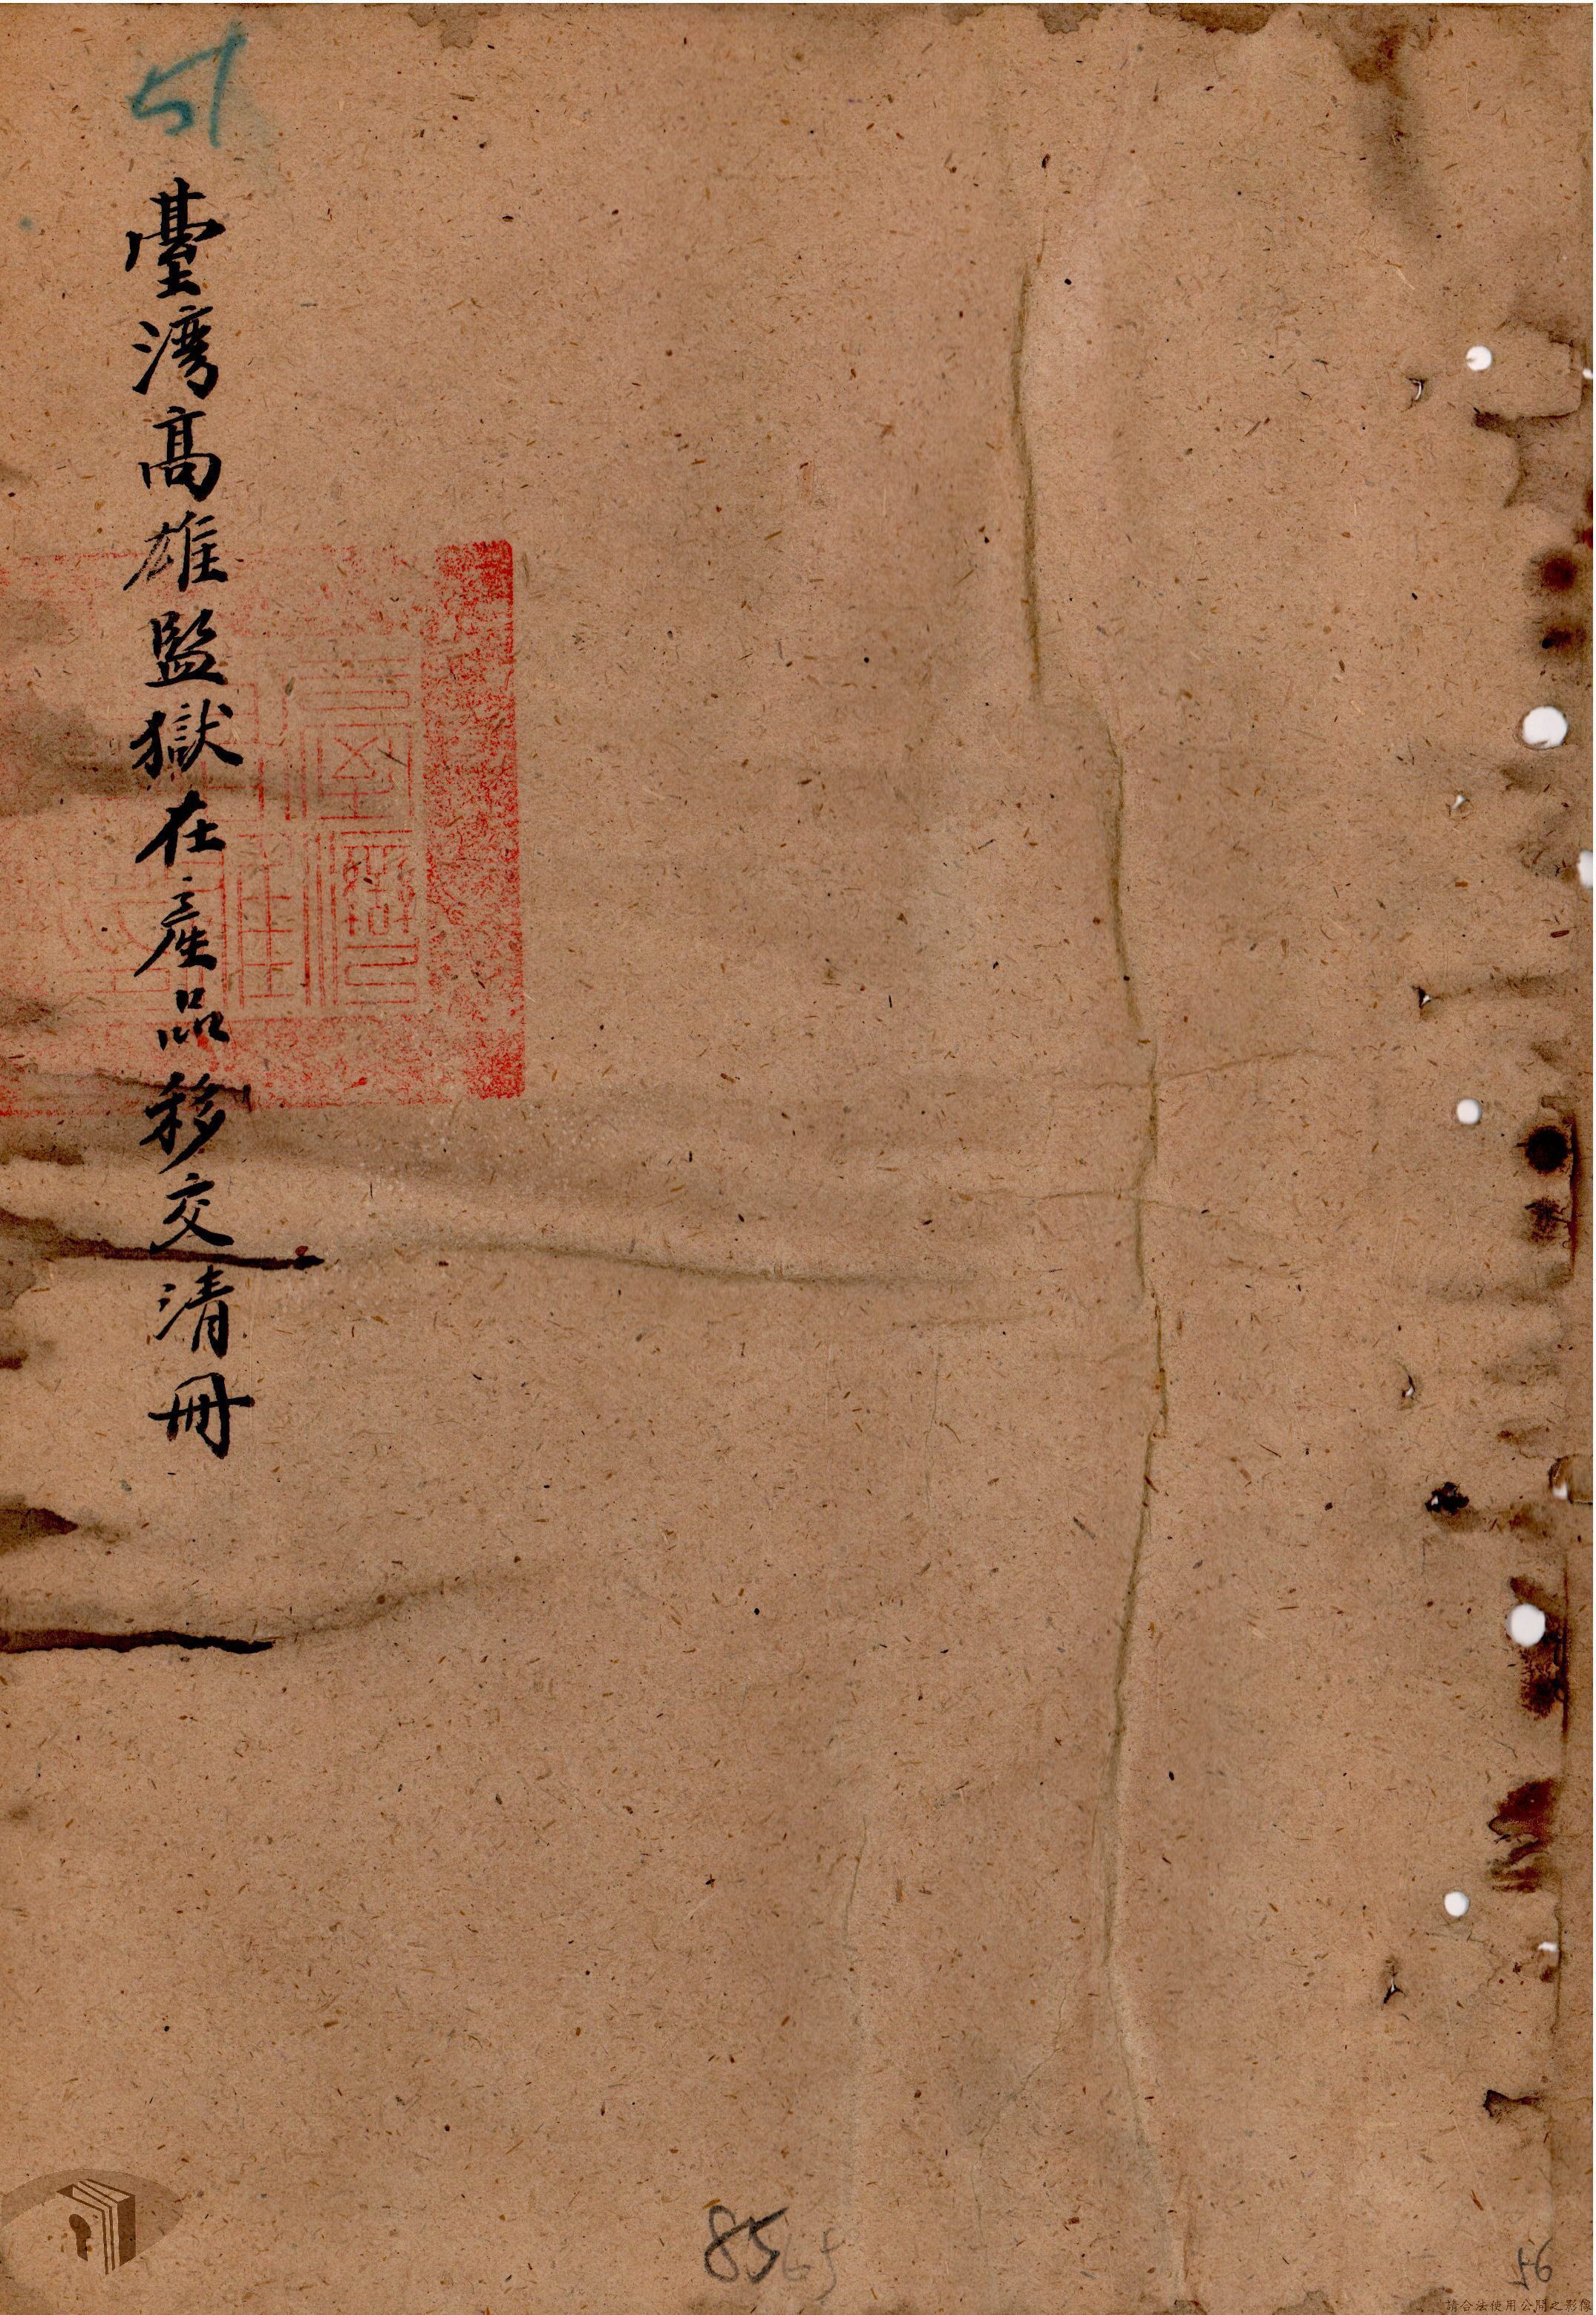 51
臺灣高雄監獄在產品移交清冊
85
56
請合法使用公開之影像